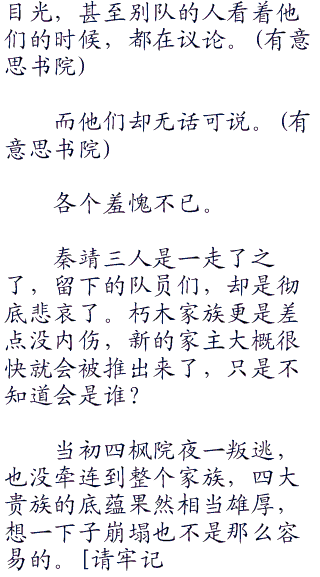 目光，甚至别队的人看着他
们的时候，都在议论。(有意
思书院)
而他们却无话可说。(有
意思书院)
各个羞愧不已。
秦靖三人是一走了之
了，留下的队员们，却是彻
底悲哀了。朽木家族更是差
点没内伤，新的家主大概很
快就会被推出来了，只是不
知道会是谁？
当初四枫院夜一叛逃，
也没牵连到整个家族，四大
贵族的底蕴果然相当雄厚，
想一下子崩塌也不是那么容
易的。[请牢记